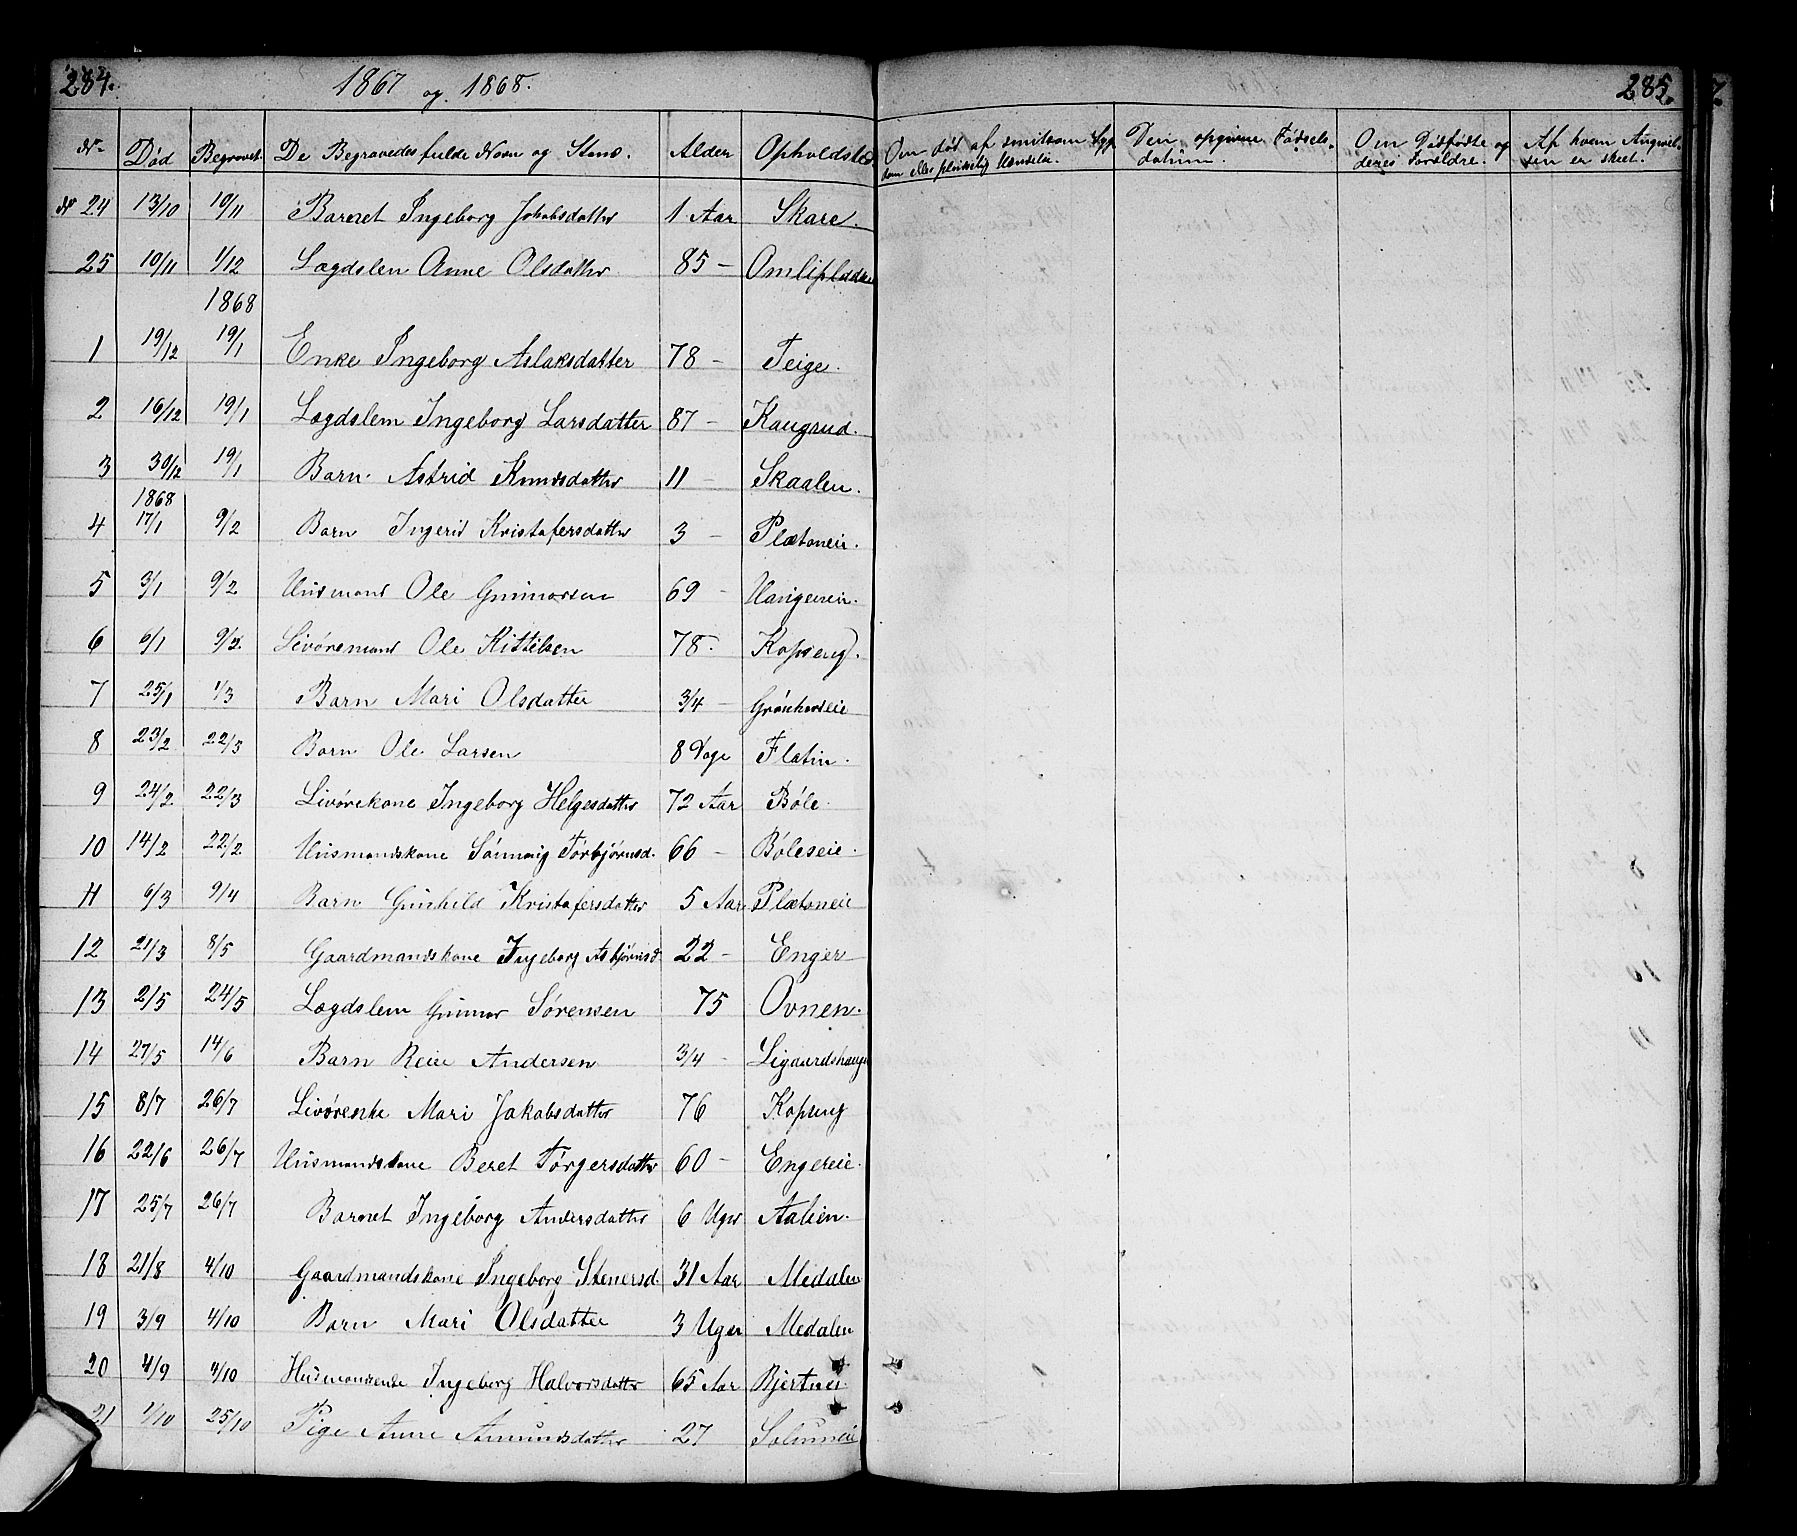 284.
1867 og 1868.
285.
No Død Begravet De Begravedes fulde Navn og Stand. Alder Opholdsted Om død af smitsom Syg- Den opgivne Fødsels- Om Dødfødte og Af hvem Anmel-
dom eller pludselig Hændelse. datum. deres Forældre. sen er skeet.
No 24 13/10 10/11 Barnet Ingeborg Jakobsdatter 1 Aar Skare.
25 10/11 1/12 Lægdslem Anne Olsdatter 85 -
1868
1 19/12 19/1 Enke Ingeborg Aslaksdatter 78 - Teige.
2 16/12 19/1 Lægdslem Ingeborg Larsdatter 87 - Kaugrud.
3 30/12 19/1 Barn Astrid Knudsdatter 11 - Skaalen.
1868
4 17/1 9/2 Barn Ingerid Kristofersdatter 3 - Plætaneie.
5 3/1 9/2 Husmand Ole Gunnarsen 69 - Haugeneie.
6 6/1 9/2 Livøremand Ole Kittilsen 78. Kopseng.
7 25/1 1/3 Barn Mari Olsdatter 3/4 -
8 23/2 22/3 Barn Ole Larsen 8 Dage Flatin.
9 24/2 22/3 Livørekone Ingeborg Helgesdatter 72 Aar Bøle.
10 14/2 22/2 Husmandskone Sønnøvig Torbjørnsd. 66 - Bøleseie.
11 6/3 9/4 Barn Gunhild Kristofersdatter 5 Aar Plætaneie
12 21/3 8/5 Gaardmandskone Ingeborg Asbjørnsd 22 - Enger
13 2/5 24/5 Lægdslem Gunnar Sørensen 75 Ovnen.
14 27/5 14/6 Barn Reier Andersen 3/4 - Ligaardshaugen
15 8/7 26/7 Livøreenke Mari Jakobsdatter 76 Kopseng
16 22/6 26/7 Husmandskone Beret Torgersdatter 60 - Engereie.
17 25/7 26/7 Barnet Ingeborg Andersdatter 6 Uger Aalien.
18 21/8 4/10 Gaardmandskone Ingeborg Stenersd. 31 Aar Medalen
19 3/9 4/10 Barn Mari Olsdatter 3 Uger Medalen
20 4/9 4/10 Husmandsenke Ingeborg Halvorsdatter 65 Aar
21 1/10 25/10 Pige Anne Amundsdatter 27